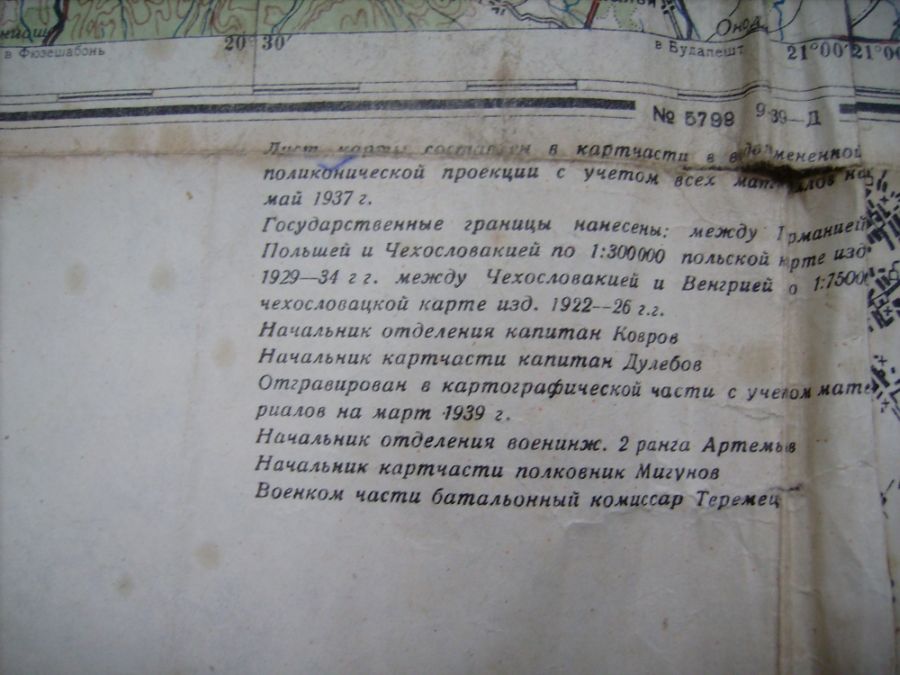 в Фюзешабонь
20°30′
Онод
в Будапешт
21°00′
21°00
№ 5798 9 39—Д
Лист карты составлен в картчасти в видоизмененной
поликонической проекции с учетом всех материалов на
май 1937 г.
Государственные границы нанесены: между Германией
Польшей и Чехословакией по 1:300000 польской карте изд
1929—34 гг. между Чехословакией и Венгрией о 1:75000
чехословацкой карте изд. 1922—26 г.г.
Начальник отделения капитан Ковров
Начальник картчасти капитан Дулебов
Отгравирован в картографической части с учетом мате
риалов на март 1939 г.
Начальник отделения военинж. 2 ранга Артемьв
Начальник картчасти полковник Мигунов
Военком части батальонный комиссар Теремец